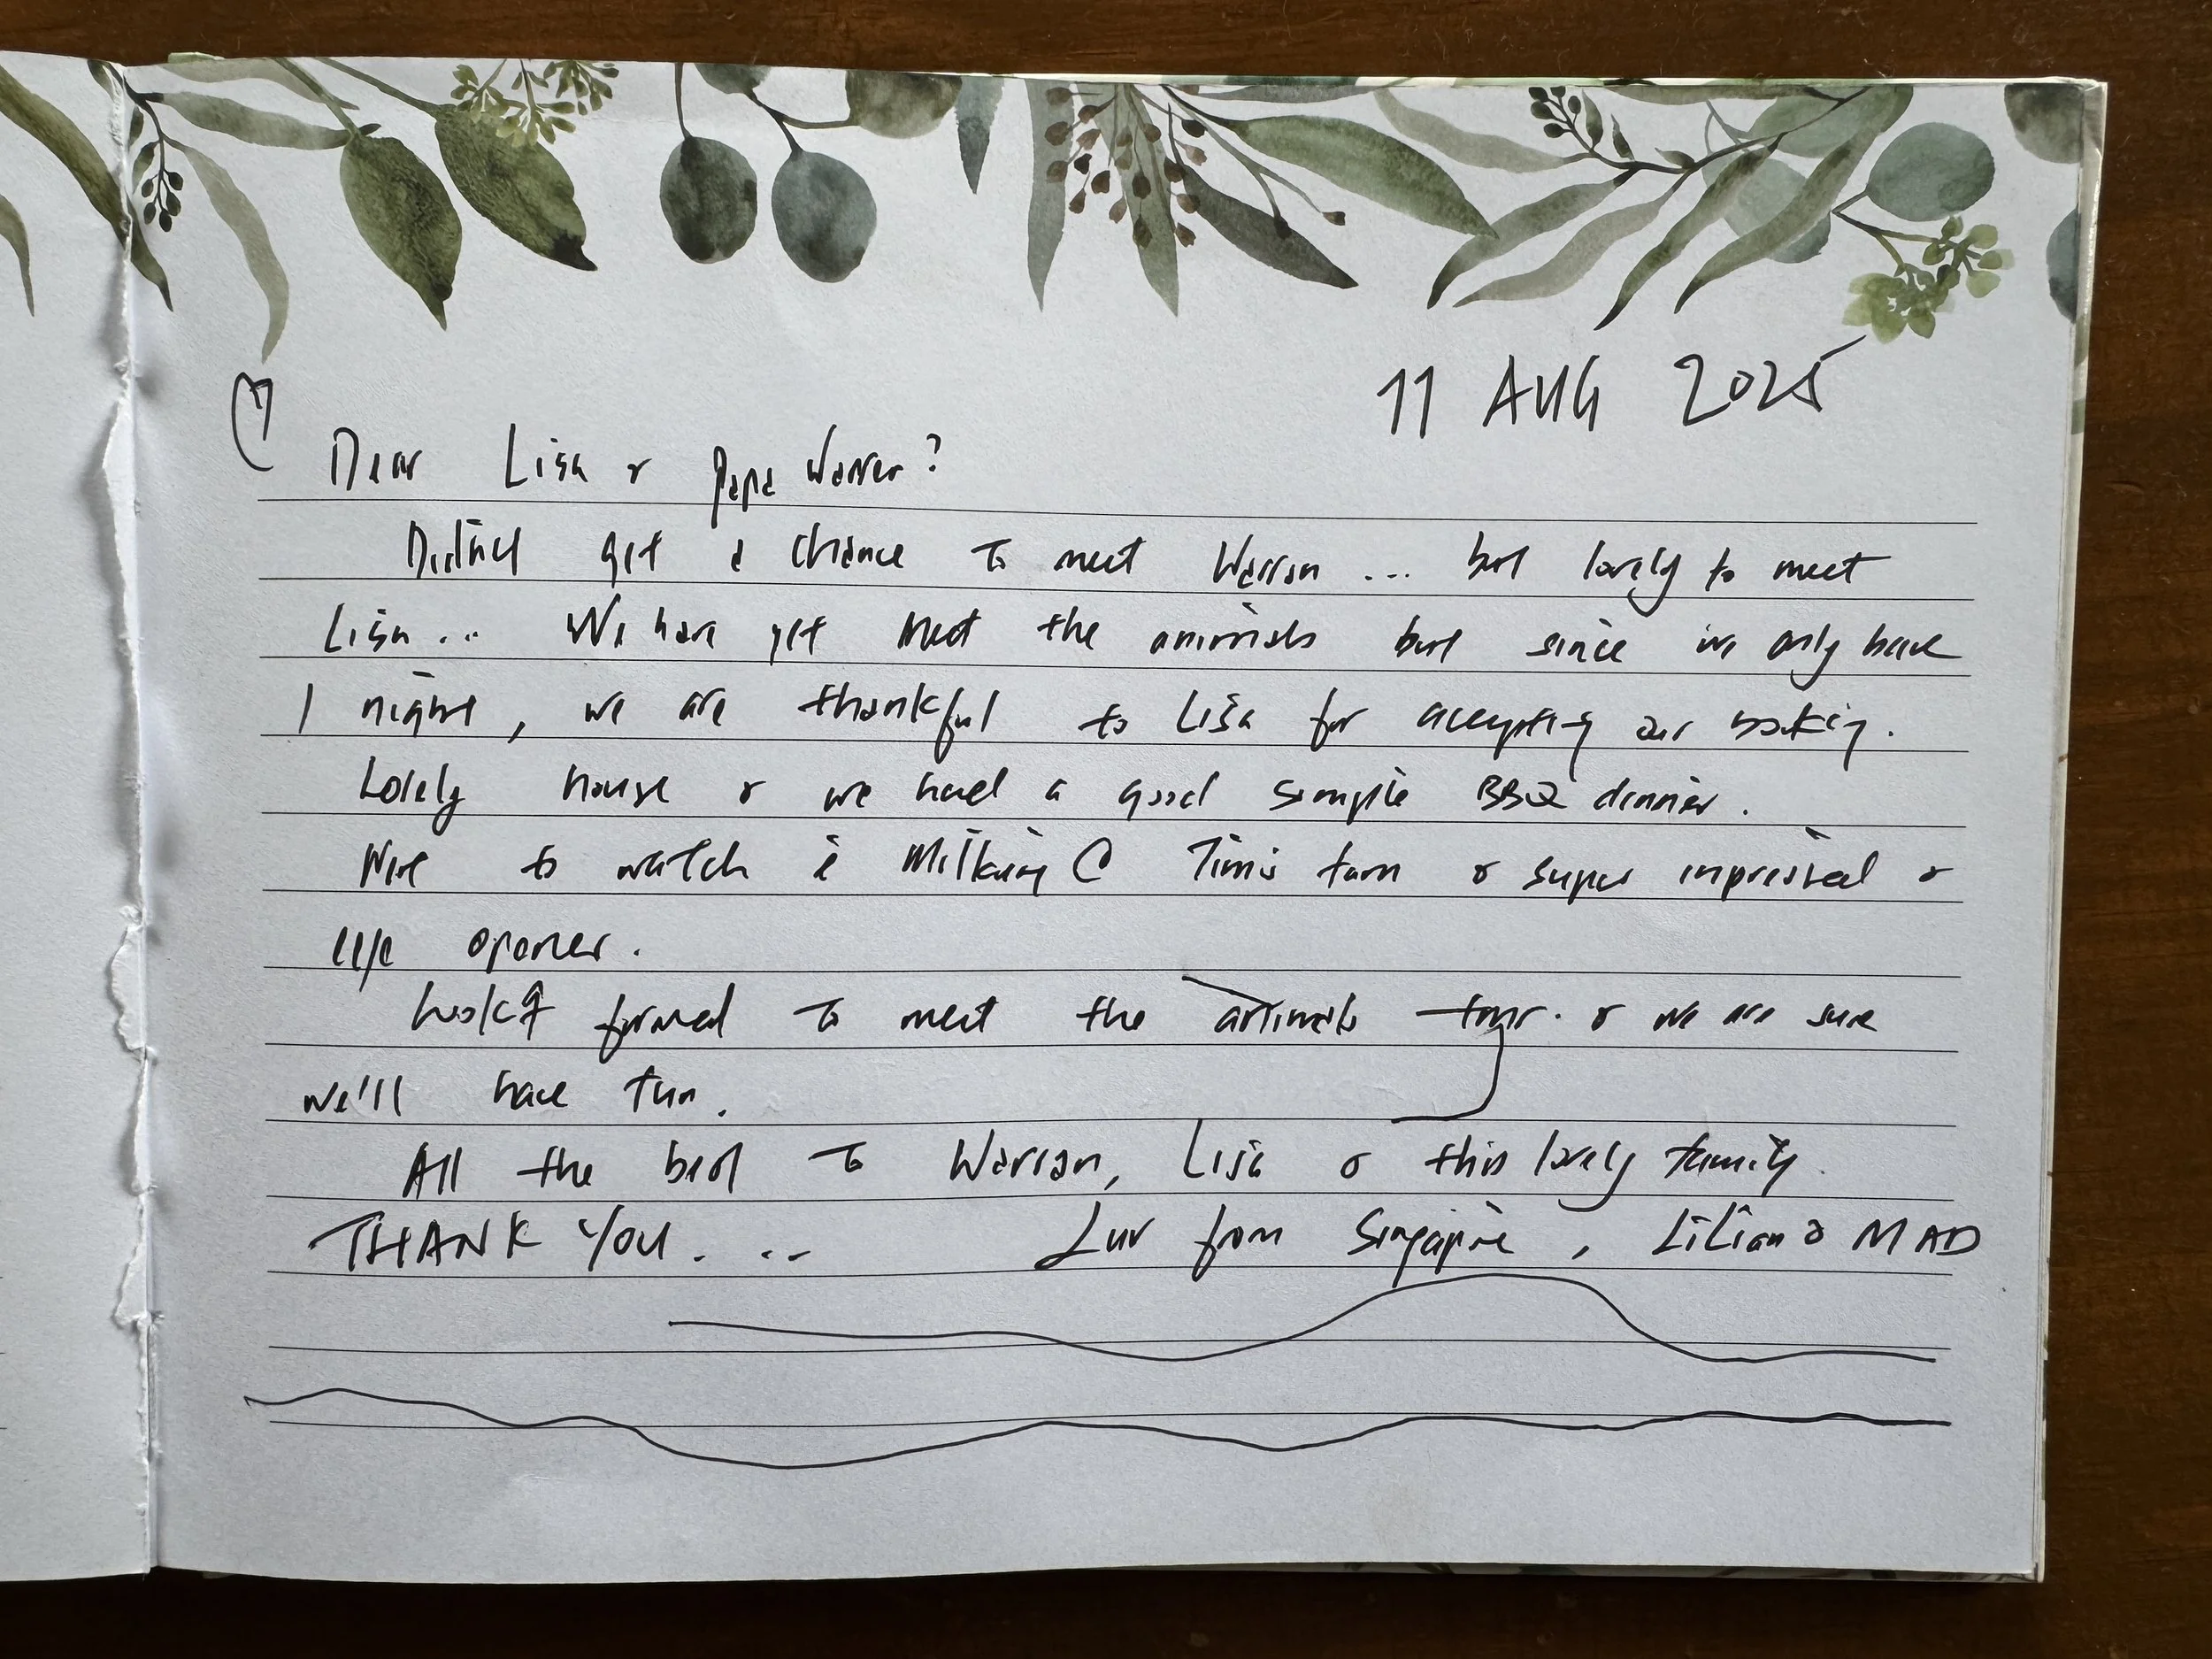 11 AUG 2025
Dear Lisa & Papa Warren?
Didn't get a chance to meet Warran ... but lovely to meet
Lisa ... We have yet meet the animals but since we only have
1 night, we are thankful to Lisa for accepting our booking.
Lovely house & we had a good simple BBQ dinner.
Nice to watch Milking @ Tim's farm & super impressed &
eye opener.
Look'g forward to meet the animals tour. & we are sure
we'll have fun.
All the best to Warran, Lisa & this lovely family.
THANK YOU. .. Luv from Singapore, Lilian & MAD